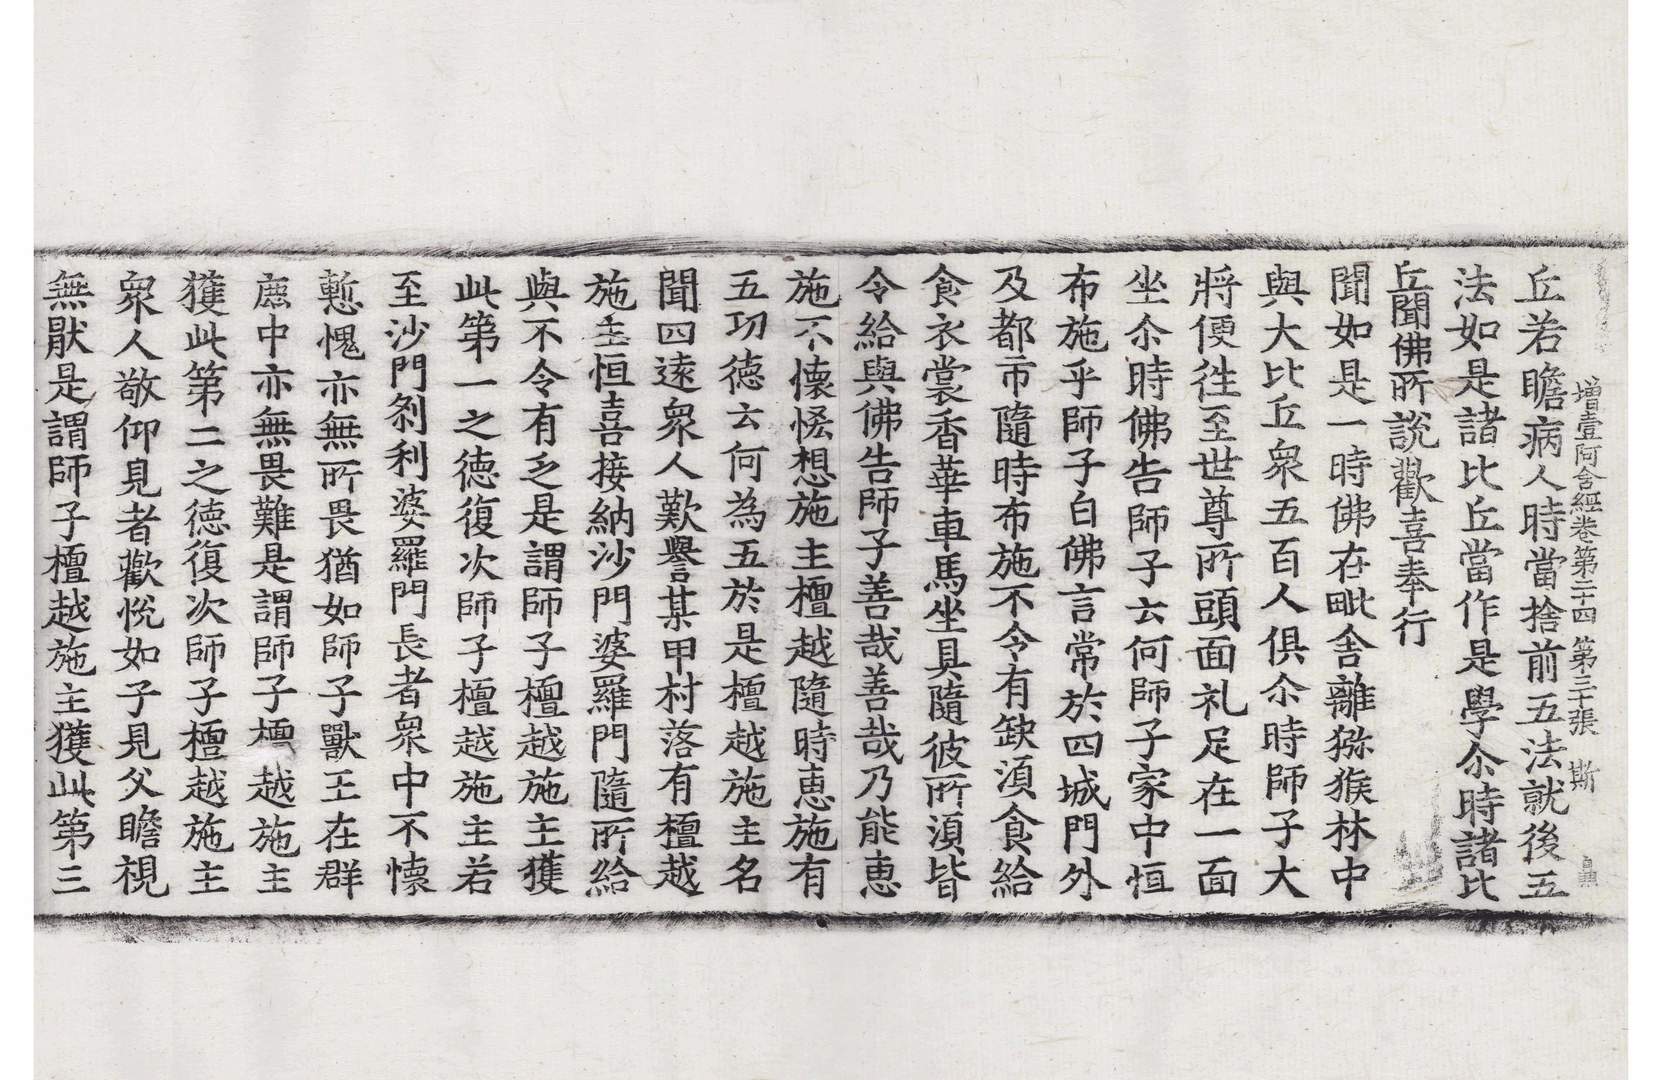 增壹阿含經卷第二十四 第三十張 斯
丘若瞻病人時當捨前五法就後五
法如是諸比丘當作是學尒時諸比
丘聞佛所說歡喜奉行
聞如是一時佛在毗舍離獼猴林中
與大比丘衆五百人俱尒時師子大
將便徃至世尊所頭面礼足在一面
坐尒時佛告師子云何師子家中恒
布施乎師子白佛言常於四城門外
及都市隨時布施不令有缺湏食給
食衣裳香華車馬坐具隨彼所湏皆
令給與佛告師子善哉善哉乃能惠
施不懷悋想施主檀越隨時惠施有
五功德云何為五於是檀越施主名
聞四遠衆人歎譽某甲村落有檀越
施主恒喜接納沙門婆羅門隨所給
與不令有乏是謂師子檀越施主獲
此第一之德復次師子檀越施主若
至沙門刹利婆羅門長者衆中不懷
慙愧亦無所畏猶如師子獸王在群
鹿中亦無畏難是謂師子檀越施主
獲此第二之德復次師子檀越施主
衆人敬仰見者歡悅如子見父瞻視
無猒是謂師子檀越施主獲此第三